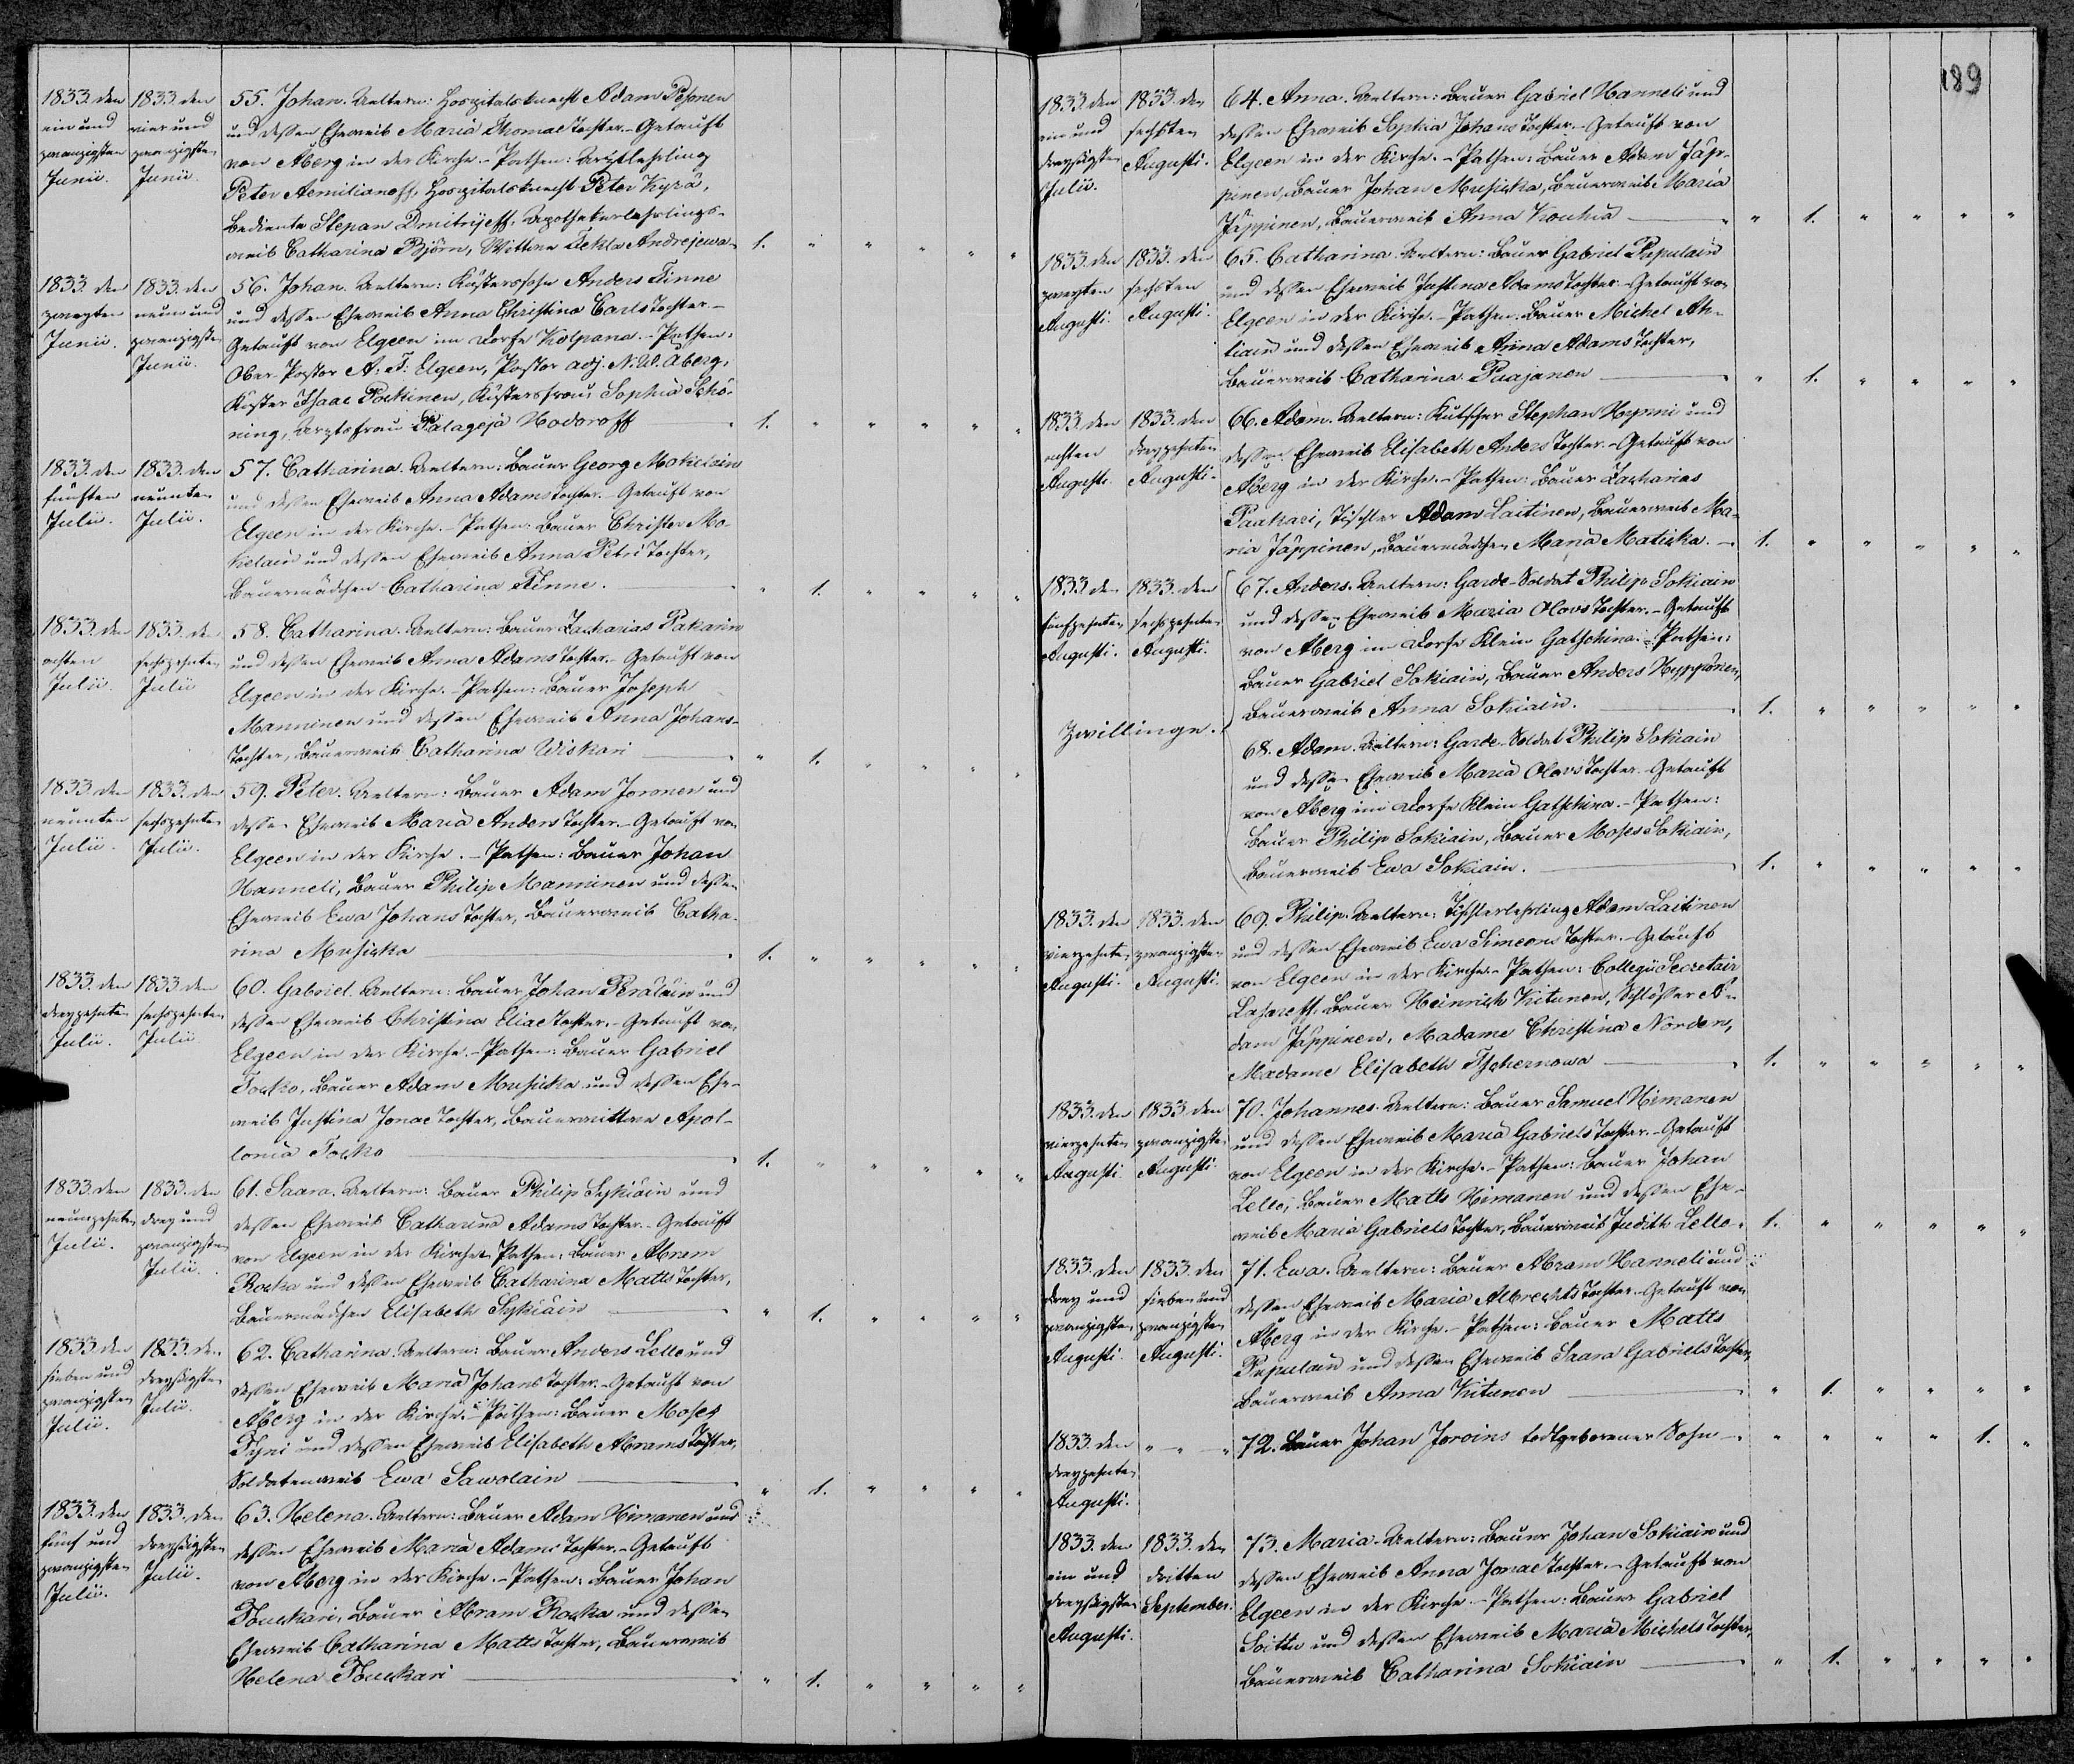 1833. den ein und zwanzigsten Junii. 1833. den vier und zwanzigsten Junii. 55. Johan. Aeltern: Hospitalsknecht Adam Pesonen
und dessen Eheweib Maria Thomae Tochter. - Getauft
von Åberg in der Kirche. - Pathen: Arztlehrling
Peter Aemilianoff, Hospitalsknecht Peter Kyrä,
Bediente Stepan Dmitrijeff, Apothekerlehrlings-
weib Catharina Björn, Wittwe Tekla Andrejewa 1. " " " " "
1833. den zweyten Junii. 1833. den neun und zwanzigsten Junii. 56. Johan. Aeltern: Küsterssohn Anders Tinne
und dessen Eheweib Anna Christina Carls Tochter. -
Getauft von Elgeen im Dorfe Kolpana. - Pathen:
Ober-Pastor A. F. Elgeen, Pastor adj. N. W. Åberg,
Küster Isaac Poikinen, Küstersfrau Sophia Schö-
ning, Arztsfrau Palageja Hodoroff 1. " " " " "
1833. den fünften Julii. 1833. den neunten Julii. 57. Catharina. Aeltern: Bauer Georg Mokelain
und dessen Eheweib Anna Adams Tochter. - Getauft von
Elgeen in der Kirche. - Pathen: Bauer Christer Mo-
kelain und dessen Eheweib Anna Petri Tochter,
Bauermädchen Catharina Tinne. " 1. " " " "
1833. den achten Julii. 1833. den sechszehnten Julii 58. Catharina. Aeltern: Bauer Zacharias Pakarin
und dessen Eheweib Anna Adams Tochter. - Getauft von
Elgeen in der Kirche. - Pathen: Bauer Joseph
Manninen und dessen Eheweib Anna Johans-
Tochter, Bauerweib Catharina Wiskari " 1. " " " "
1833. den neunten Julii. 1833. den sechszehnten Julii. 59. Peter. Aeltern: Bauer Adam Joronen und
dessen Eheweib Maria Anders Tochter. - Getauft von
Elgeen in der Kirche. - Pathen: Bauer Johan
Hanneli, Bauer Philip Manninen und dessen
Eheweib Ewa Johans Tochter, Bauerweib Catha-
rina Musicka 1. " " " " "
1833. den dreyzehnten Julii. 1833. den sechszehnten Julii 60. Gabriel. Aeltern: Bauer Johan Perälain und
dessen Eheweib Christina Eliae Tochter. - Getauft von
Elgeen in der Kirche. - Pathen: Bauer Gabriel
Tocko, Bauer Adam Musicka und dessen Ehe-
weib Justina Jonae Tochter, Bauerwittwe Apol-
lonia Tocko 1. " " " " "
1833. den neunzehnten Julii. 1833. den drey und zwanzigsten Julii. 61. Saara. Aeltern: Bauer Philip Sykiäin und
dessen Eheweib Catharina Adams Tochter. - Getauft
von Elgeen in der Kirche. Pathen: Bauer Abram
Rocka und dessen Eheweib Catharina Matts Tochter,
Bauermädchen Elisabeth Sykiäin " 1. " " " "
1833. den sieben und zwanzigsten Julii. 1833. den dreyssigsten Julii. 62. Catharina. Aeltern: Bauer Anders Lello und
dessen Eheweib Maria Johans Tochter. - Getauft von
Åberg in der Kirche. - Pathen: Bauer Moses
Tyni und dessen Eheweib Elisabeth Abrams Tochter,
Soldatenweib Ewa Sawolain " 1. " " " "
1833. den fünf und zwanzigsten Julii. 1833. den dreyssigsten Julii. 63. Helena. Aeltern: Bauer Adam Himanen und
dessen Eheweib Maria Adams Tochter. - Getauft
von Åberg in der Kirche. - Pathen: Bauer Johan
Touckari, Bauer Abram Rocka und dessen
Eheweib Catharina Matts Tochter, Bauerweib
Helena Touckari " 1. " " " "
189
1833. den ein und dreyssigsten Julii. 1833. den sechsten Augusti. 64. Anna. Aeltern: Bauer Gabriel Hanneli und
dessen Eheweib Sophia Johans Tochter. - Getauft von
Elgeen in der Kirche. - Pathen: Bauer Adam Jäp-
pinen, Bauer Johan Musicka, Bauerweib Maria
Jäppinen, Bauerweib Anna Kouhia " 1. " " " "
1833. den zweyten Augusti. 1833. den sechsten Augusti. 65. Catharina. Aeltern: Bauer Gabriel Pupulain
und dessen Eheweib Justina Adams Tochter. - Getauft von
Elgeen in der Kirche. - Pathen: Bauer Michel Ah-
liain und dessen Eheweib Anna Adams Tochter,
Bauerweib Catharina Paajanen " 1. " " " "
1833. den achten Augusti. 1833. den dreyzehnten Augusti. 66. Adam. Aeltern: Kutscher Stephan Hyrni und
dessen Eheweib Elisabeth Anders Tochter. - Getauft von
Åberg in der Kirche. - Pathen: Bauer Zacharias
Paakari, Tischler Adam Laitinen, Bauerweib Ma-
ria Jäppinen, Bauermädchen Maria Maticka. 1. " " " " "
1833. den fünfzehnten Augusti. 1833. den sechszehnten Augusti. 67. Anders. Aeltern: Garde-Soldat Philip Sokiain
und dessen Eheweib Maria Olovs Tochter. - Getauft
von Åberg im Dorfe Klein Gatschina. - Pathen:
Bauer Gabriel Sokiain, Bauer Anders Hyppönen,
Bauerweib Anna Sokiain. 1. " " " " "
Zwillinge.
68. Adam. Aeltern: Garde-Soldat Philip Sokiain
und dessen Eheweib Maria Olovs Tochter. - Getauft
von Åberg im Dorfe Klein Gatschina. - Pathen:
Bauer Philip Sokiain, Bauer Moses Sokiain,
Bauerweib Ewa Sokiain. 1. " " " " "
1833. den vierzehnten Augusti. 1833. den zwanzigsten Augusti. 69. Philip. Aeltern: Tischlerlehrling Adam Laitinen
und dessen Eheweib Ewa Simeons Tochter. - Getauft
von Elgeen in der Kirche. - Pathen: Collegii Secretair
Lazareff, Bauer Heinrich Kitunen, Schlösser A-
dam Jäppinen, Madame Christina Norden,
Madame Elisabeth Tschernowa 1. " " " " "
1833. den vierzehnten Augusti. 1833. den zwanzigsten Augusti. 70. Johannes. Aeltern: Bauer Samuel Himanen
und dessen Eheweib Maria Gabriels Tochter. - Getauft
von Elgeen in der Kirche. - Pathen: Bauer Johan
Lello, Bauer Matts Himanen und dessen Ehe-
weib Maria Gabriels Tochter, Bauerweib Judith Lello. 1. " " " " "
1833. den drey und zwanzigsten Augusti. 1833. den sieben und zwanzigsten Augusti. 71. Ewa. Aeltern: Bauer Abram Hanneli und
dessen Eheweib Maria Albrechts Tochter. - Getauft von
Åberg in der Kirche. - Pathen: Bauer Matts
Pupulain und dessen Eheweib Saara Gabriels Tochter,
Bauerweib Anna Kitunen " 1. " " " "
1833. den dreyzehnten Augusti. " " " 72. Bauer Johan Joroins todtgeborener Sohn " " " " 1. "
1833. den ein und dreyssigsten Augusti. 1833. den dritten September. 73. Maria. Aeltern: Bauer Johan Sokiain und
dessen Eheweib Anna Jonae Tochter. - Getauft von
Elgeen in der Kirche. - Pathen: Bauer Gabriel
Soittu und dessen Eheweib Maria Michels Tochter,
Bauerweib Catharina Sokiain " 1. " " " "